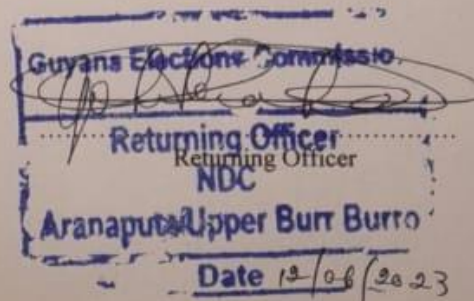 Guyana Elections Commissio.
Returning Officer
Returning Officer
NDC
Aranaputa/Upper Burr Burro
Date 12/06/2023